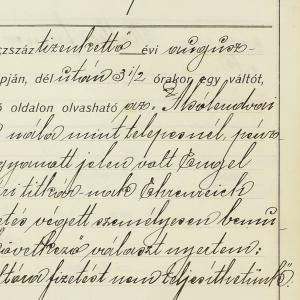 zszáz tizenkettő évi augusz-
pján, dél után 3 1/2 órakor egy váltót,
ó oldalon olvasható az Alsólendvai
nála mint telepesnél, pénz-
gyanott jelen volt Engel
ri titkár nak Ehrenreich
etés végett személyesen bemu-
övetkező választ nyertem:
ltóra fizetést nem teljesíthetünk.